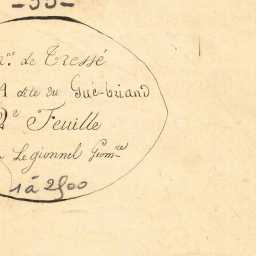 -55-
on. de Tressé
A dite du Gué-briand
2e Feuille
Legionnel Geomre
1 à 2500